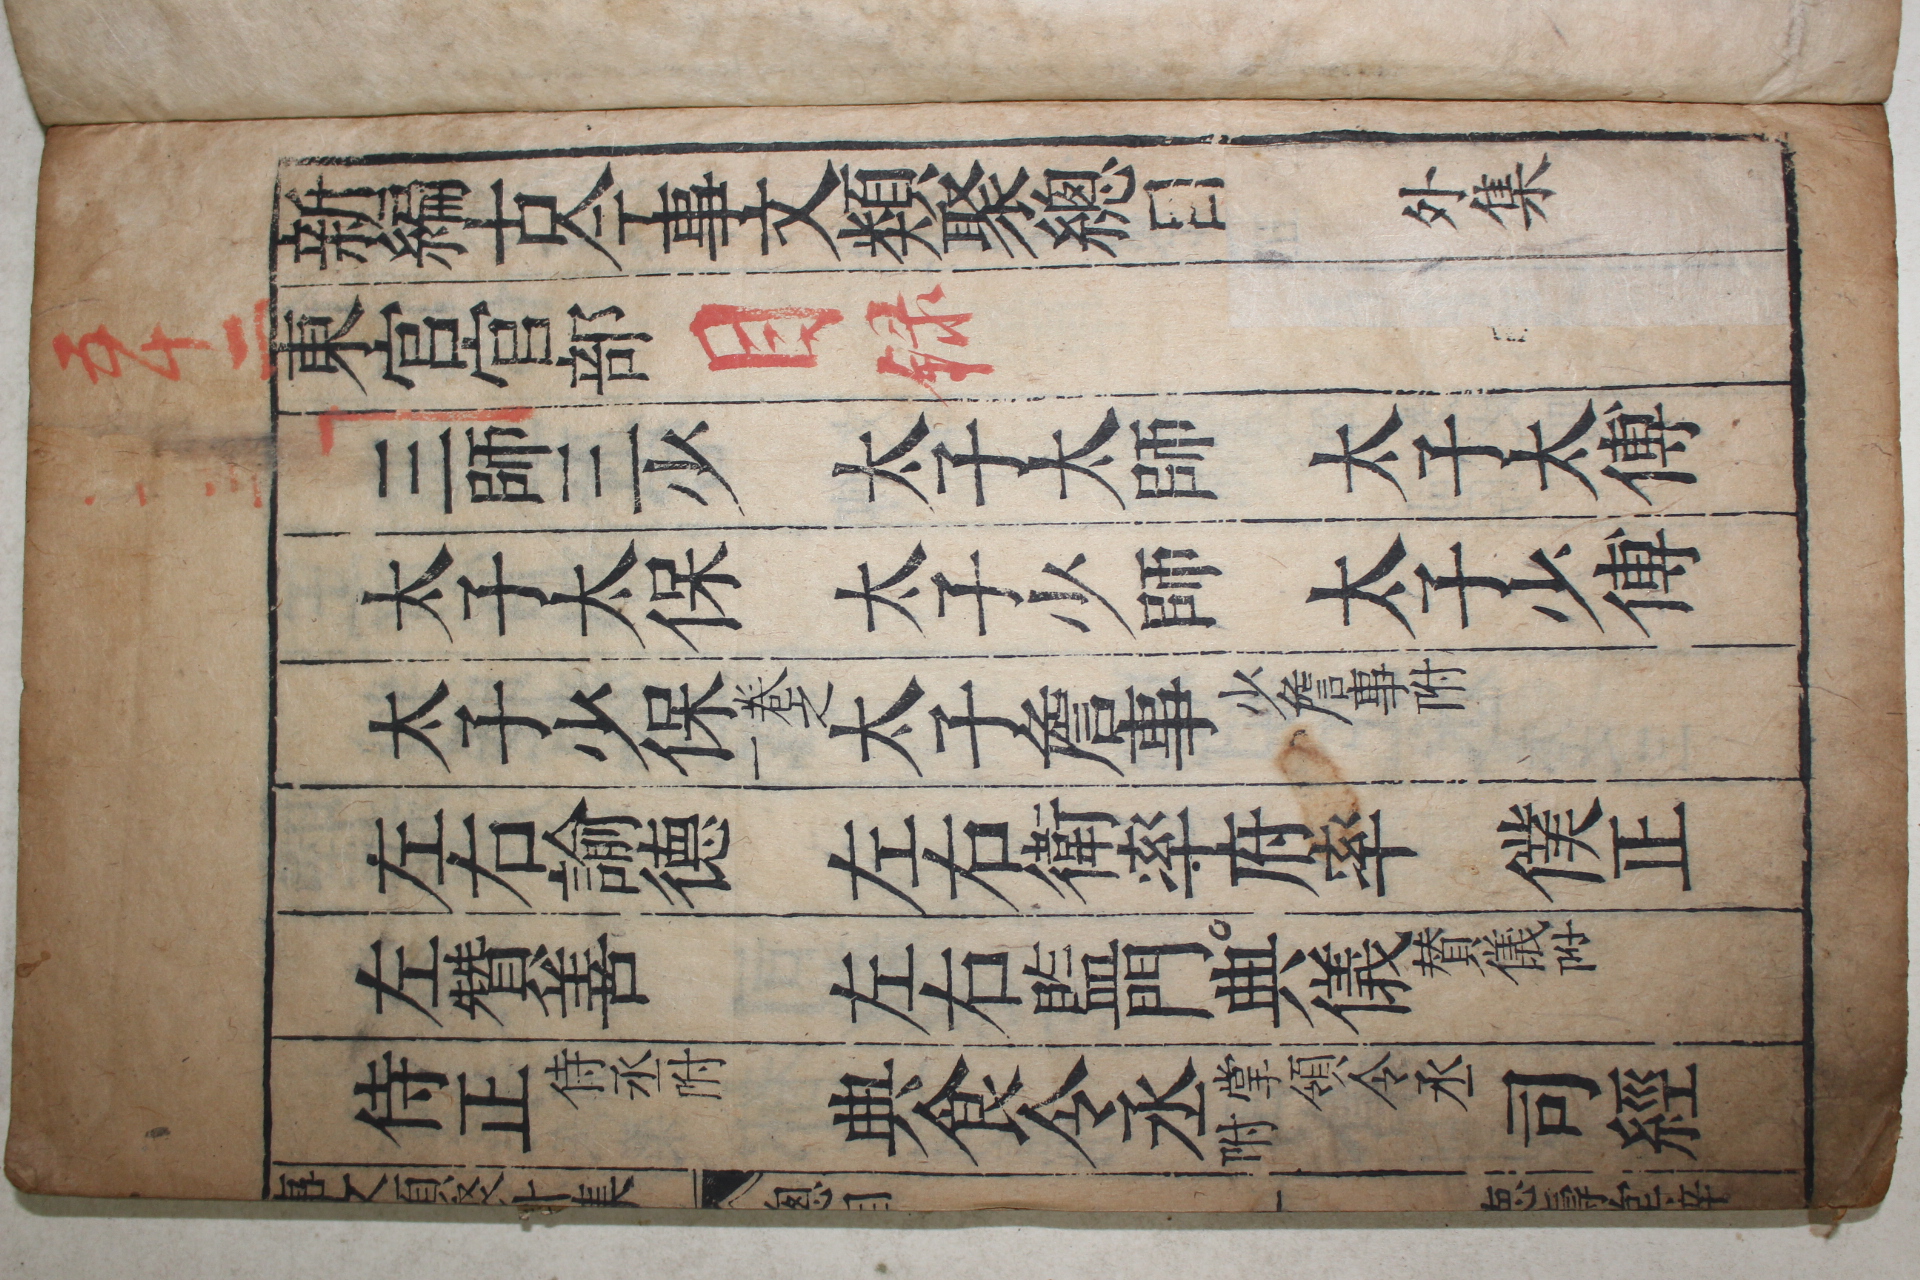 五十二
新編古今事文類聚總目 外集
東宮官部 目録
三師三少 太子太師 太子太傅
太子太保 太子少師 太子少傅
太子少保 卷之一 太子詹事 少詹事附
左右諭德 左右衛率府率 僕正
左贊善 左右監門 典儀 賛儀附
侍正 侍丞附 典食令丞 掌領令丞附 司經
事文類聚外集 總目 一 德壽堂梓